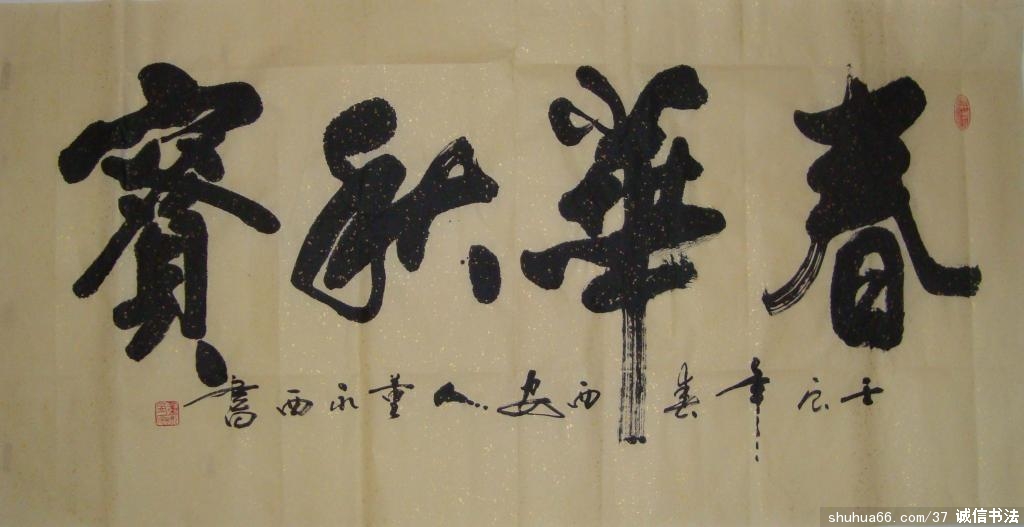 春華秋實
壬辰年春西安人董永西書
shuhua66.com/37 诚信书法